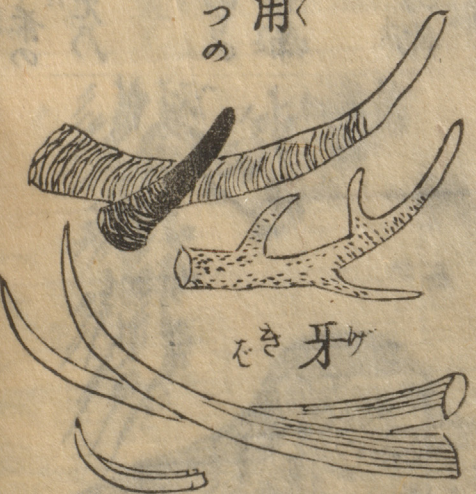 角
く
つの
牙
げ
きば